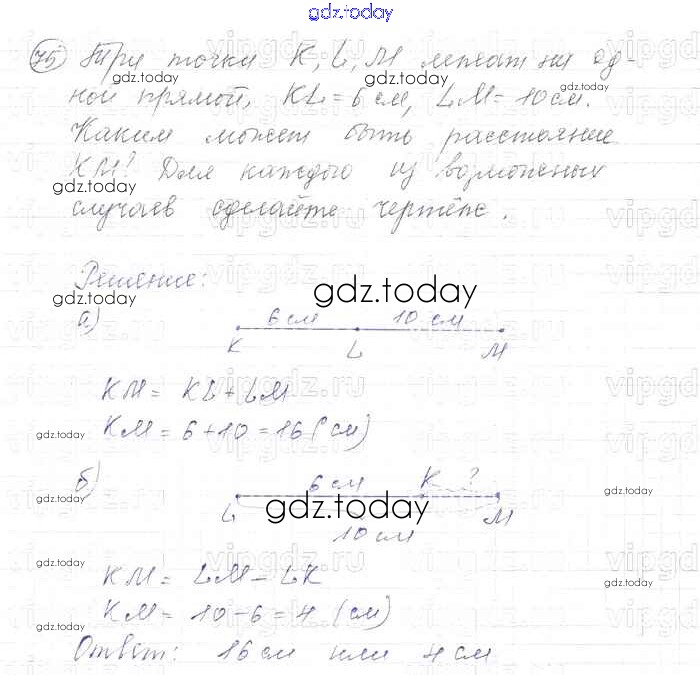 gdz.today
75 Три точки K, L, M лежат на од-
gdz.today gdz.today
ной прямой, KL = 6 см, LM = 10 см.
Каким может быть расстояние
KM? Для каждого из возможных
gdz.today
случаев сделайте чертёж.
Решение:
gdz.today gdz.today
а) 6 см 10 см
K L M
KM = KL + LM
gdz.today KM = 6 + 10 = 16 (см)
б) 6 см K ?
gdz.today gdz.today
L gdz.today M
10 см
KM = LM - LK
gdz.today
KM = 10 - 6 = 4 (см)
gdz.today
Ответ: 16 см или 4 см
vipgdz.ru